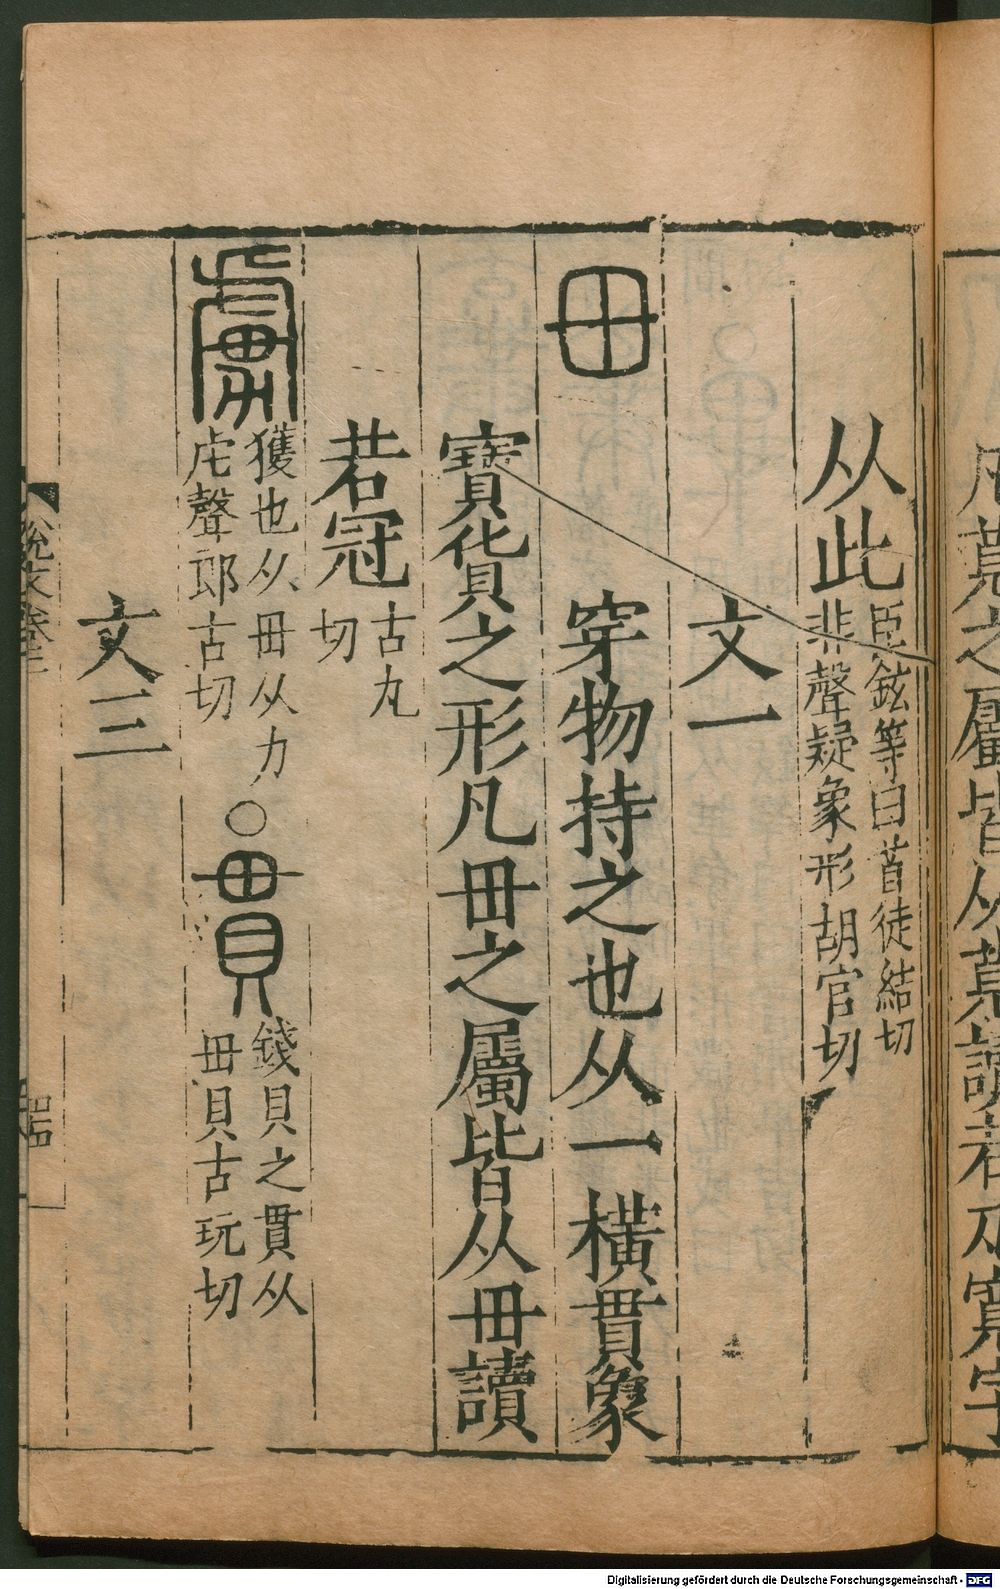 凡萈之屬皆从萈讀若丸寬字
从此臣鉉等曰𥄕徒結切
非聲疑象形胡官切
文一
毌 穿物持之也从一橫貫象
寶貨之形凡毌之屬皆从毌讀
若冠古丸切
虜獲也从毌从力
虍聲郎古切○貫錢貝之貫从
毌貝古玩切
文三
說文卷
Digitalisierung gefördert durch die Deutsche Forschungsgemeinschaft - DFG